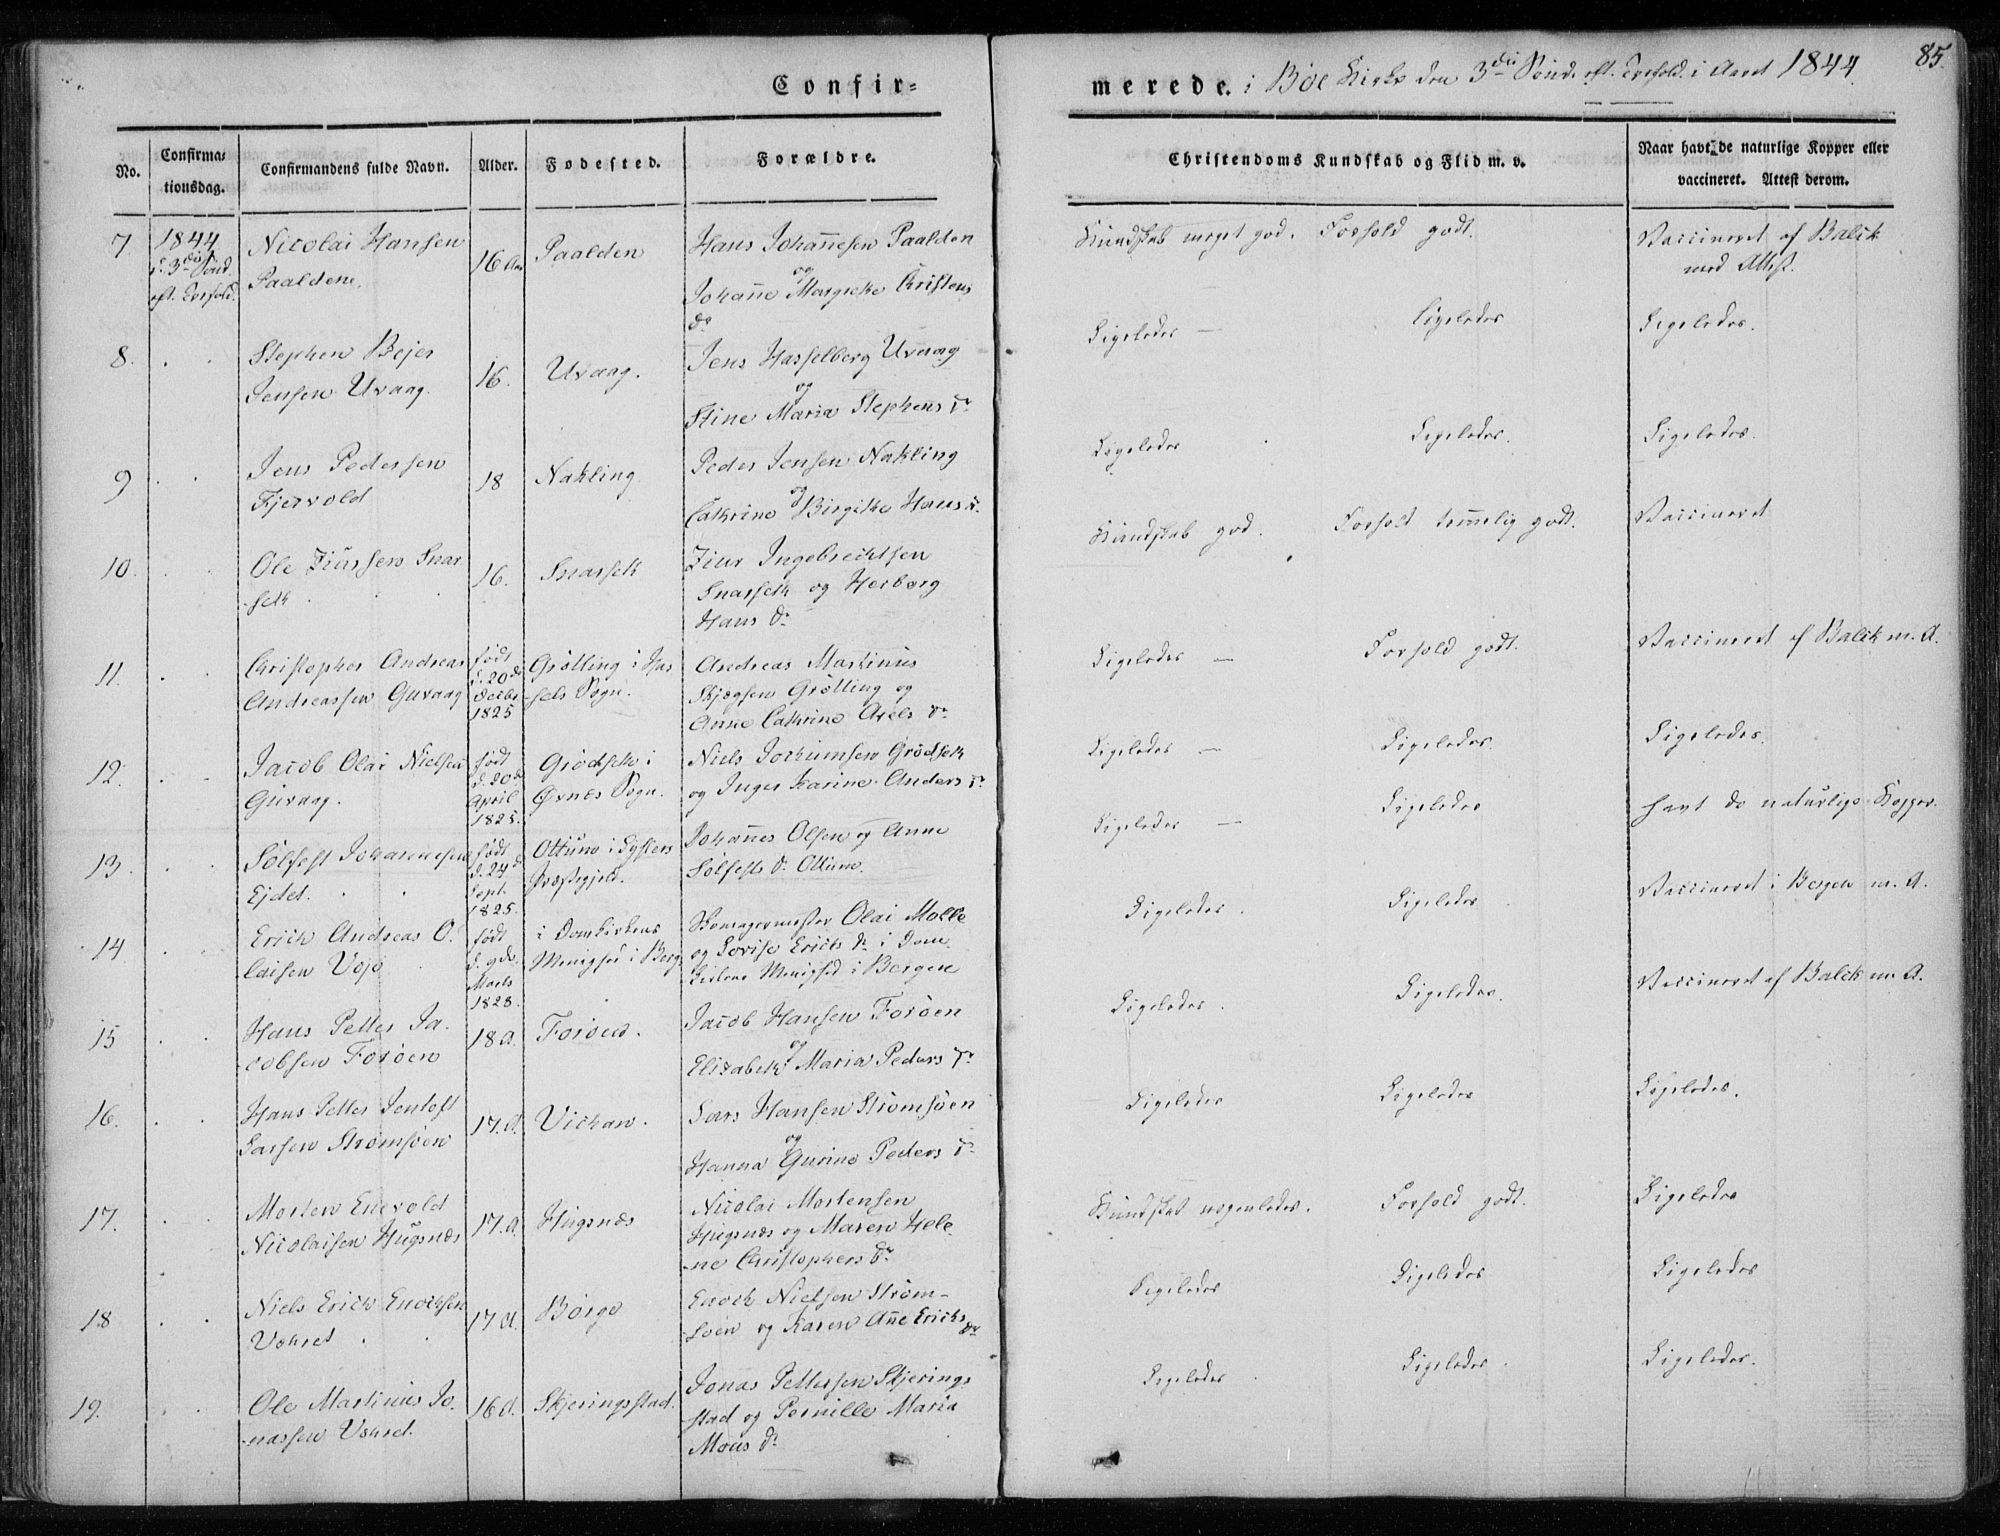 85.
Confir-
merede. i Bøe Kirke den 3die Sønd. eft. Trefold. i Aaret 1844
No.
Confirma-
tionsdag.
Confirmandens fulde Navn.
Alder.
Fødested.
Forældre.
Christendoms Kundskab og Flid m. v.
Naar havt de naturlige Kopper eller
vaccineret. Attest derom.
7
1844
d. 3die Sønd.
eft. Trefold.
Nicolai Hansen
Paaldene.
16 Aar
Paalden
Hans Johannesen Paalden
og
Johanne Margrethe Christens
Dr
Kundskab meget god. Forhold godt.
Vaccineret af Balck
med Attest.
8.
Stephen Bejer
Jensen Uvaag.
16.
Uvaag.
Jens Hasselberg Uvaag
og
Stine Maria Stephens Dr
Ligeledes — Ligeledes
Ligeledes.
9
Jens Pedersen
Fjervold
18
Nakling
Peder Jensen Nakling
og
Cathrine Birgithe Hans Dr.
Ligeledes Ligeledes.
Ligeledes.
10.
Ole Siursen Snar-
seth
16.
Snarseth
Siur Ingebrechtsen
Snarseth og Herborg
Hans Dr
Kundskab god. Forhold temmelig godt.
Vaccineret
11.
Christopher Andreas
Andreassen Guvaag
født
d. 20de
Decbr
1825
Grøtting i Has-
sels Sogn.
Andreas Martinus
Grøtting og
Anne Cathrine Axels Dr
Ligeledes — Forhold godt.
Vaccineret af Balck m. A.
12.
Jacob Olai Nielsen
Guvaag.
født
d. 20de
April
1825.
Grødseth i
Øxnes Sogn.
Niels Jochumsen Grødseth
og Inger Karine Anders Dr
Ligeledes — Ligeledes.
Ligeledes.
13.
Sølfest Johannesen
Ejdet.
født
d. 24de
Sept.
1825.
Ottune i Lysters
Præstegjeld.
Johannes Olsen og Anne
Sølfests Dr Ottune.
Ligeledes — Ligeledes
havt de naturlige Kopper.
14
Erich Andreas O-
laisen Vojø
født
d. 9de
Marts
1828.
i Domkirkens
Menighed i Berg.
Skomagermester Olai Molle
og Lovise Erichs Dr i Dom-
kirkens Menighed i Bergen
Ligeledes. Ligeledes.
Vaccineret i Bergen m. A.
15
Hans Petter Ja-
cobsen Forøen
18 A.
Forøen.
Jacob Hansen Forøen
og
Elizabeth Maria Peders Dr
Ligeledes. Ligeledes.
Vaccineret af Balck m. A.
16.
Hans Petter Jentoft
Larsen Strømsøen
17. A.
Vichan.
Lars Hansen Strømsøen
og
Hanna Gurine Peders Dr
Ligeledes Ligeledes
Ligeledes.
17.
Morten Enevold
Nicolaisen Hugsnæs
17. A.
Hugsnæs
Nicolai Mortensen
Hugsnæs og Maren Hele-
ne Christophers Dr
Kundskab nogenledes. Forhold godt.
Ligeledes
18
Niels Erich Enochsen
Vohret
17. A.
Børgo
Enoch Nielsen Strøm-
søen og Karen Anne Erichs
Dr
Ligeledes Ligeledes
Ligeledes
19.
Ole Martinus Jo-
nassen Vohret.
16 A.
Skjeringsstad.
Jonas Pettersen Skjerings-
stad og Pernille Maria
Mons Dr
Ligeledes Ligeledes.
Ligeledes.